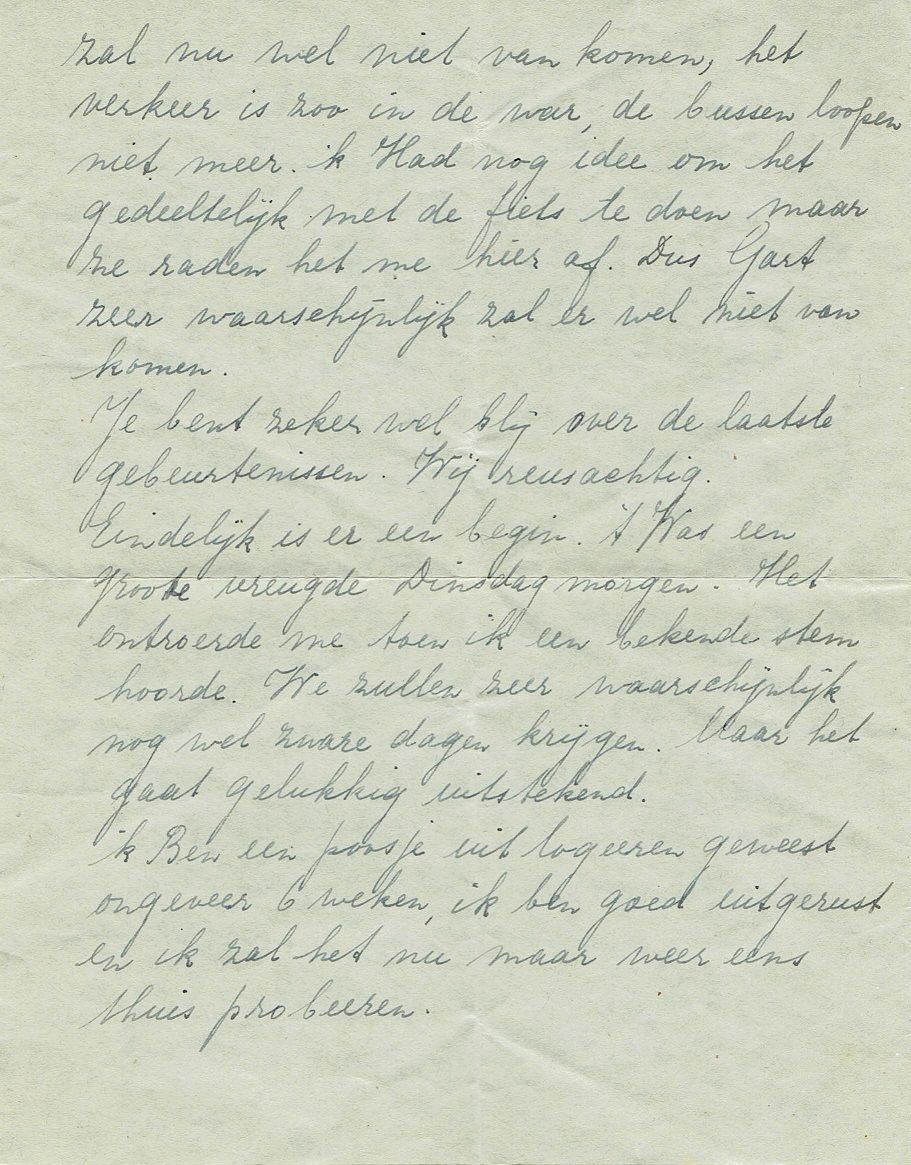 zal nu wel niet van komen, het
verkeer is zoo in de war, de bussen loopen
niet meer. ik Had nog idee om het
gedeeltelijk met de fiets te doen maar
ze raden het me hier af. Dus Gart
zeer waarschijnlijk zal er wel niet van
komen.
Je bent zeker wel blij over de laatste
gebeurtenissen. Wij reusachtig.
Eindelijk is er een begin. 't Was een
groote vreugde Dinsdag morgen. Het
ontroerde me toen ik een bekende stem
hoorde. We zullen zeer waarschijnlijk
nog wel zware dagen krijgen. Maar het
gaat gelukkig uitstekend.
ik Ben een poosje uit logeeren geweest
ongeveer 6 weken, ik ben goed uitgerust
en ik zal het nu maar weer eens
thuis probeeren.